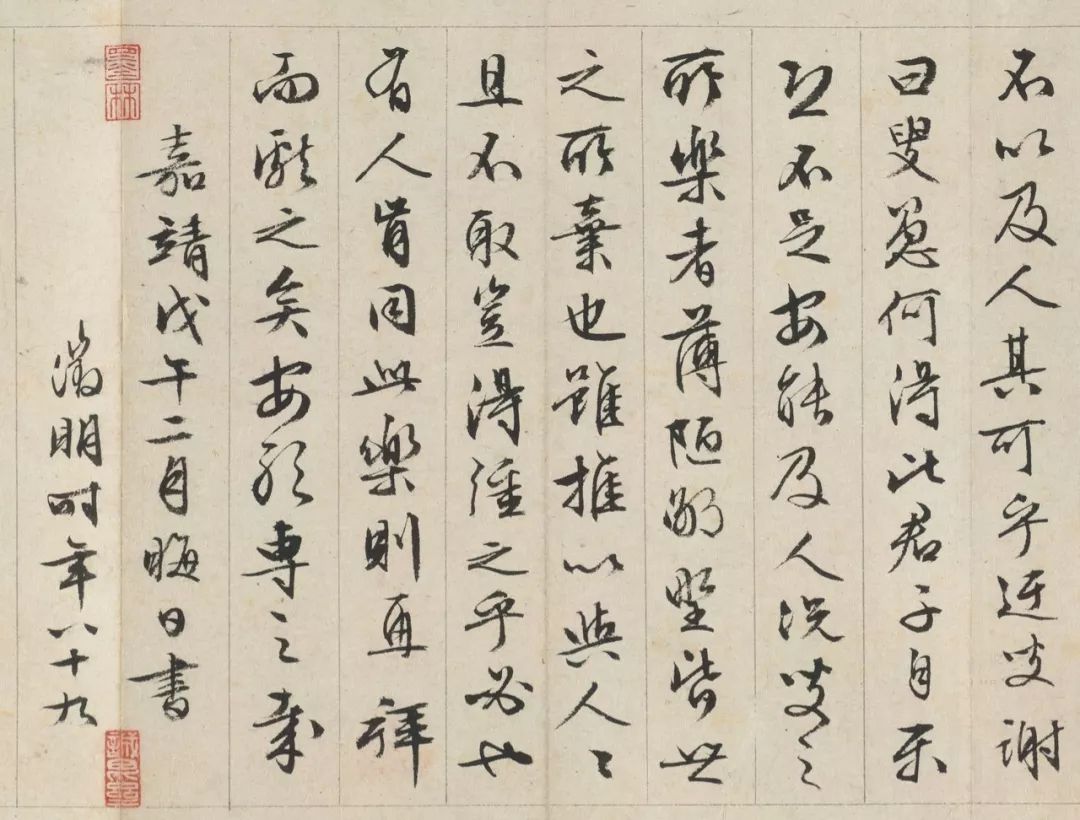 不以及人其可乎迂叟謝
曰叟愚何得比君子自樂
恐不足安能及人況叟之
所樂者薄陋鄙野皆世
之所棄也雖推以與人〻
且不取豈得強之乎必也
有人肯同此樂則再拜
而獻之矣安敢專之哉
嘉靖戊午二月晦日書
徵明時年八十九
墨林